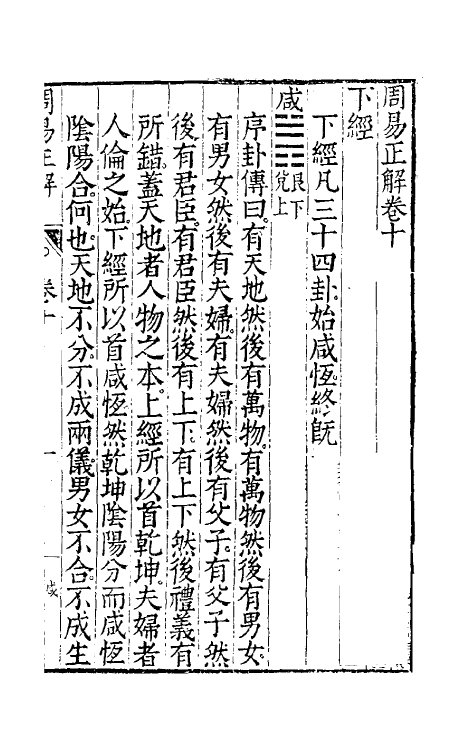 周易正解卷十
下經
下經凡三十四卦。始咸恆。終旣
咸 ䷞ 艮下兌上
序卦傳曰。有天地然後有萬物。有萬物然後有男女。
有男女然後有夫婦。有夫婦然後有父子。有父子然
後有君臣。有君臣然後有上下。有上下然後禮義有
所錯。蓋天地者人物之本。上經所以首乾坤。夫婦者
人倫之始。下經所以首咸恆。然乾坤陰陽分而咸恆
陰陽合。何也。天地不分。不成兩儀。男女不合。不成生
周易正解 卷十 一 咸